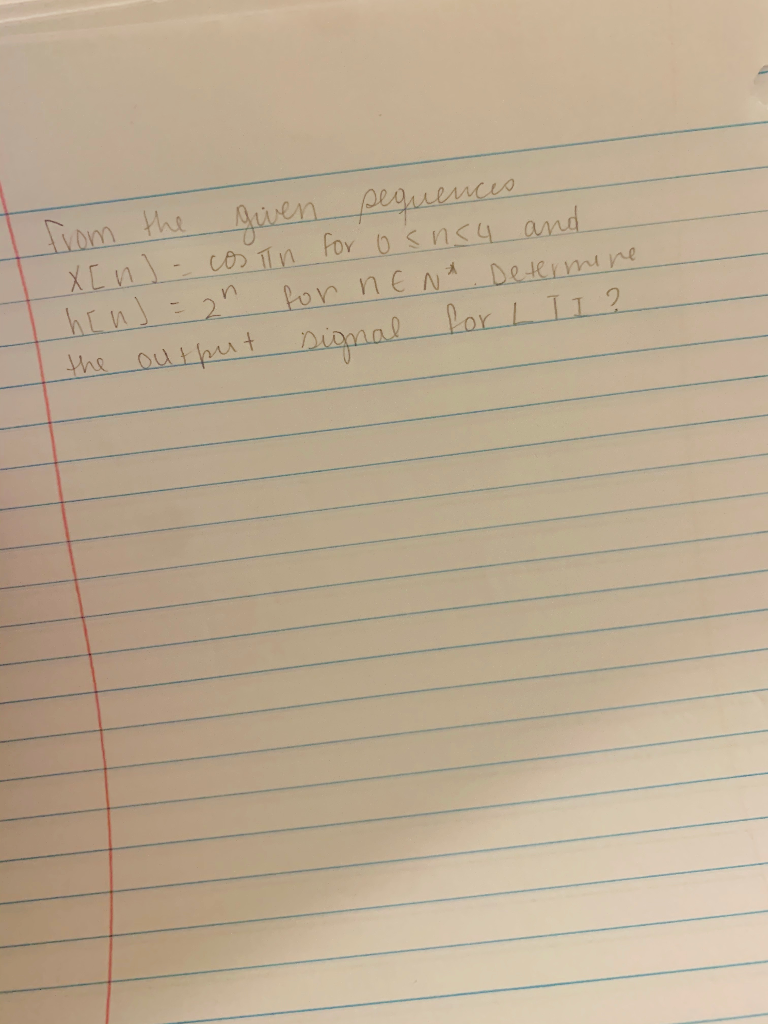 from the given sequences
x[n] = cos πn for 0 ≤ n ≤ 4 and
h[n] = 2ⁿ for n ∈ N*. Determine
the output signal for LTI?